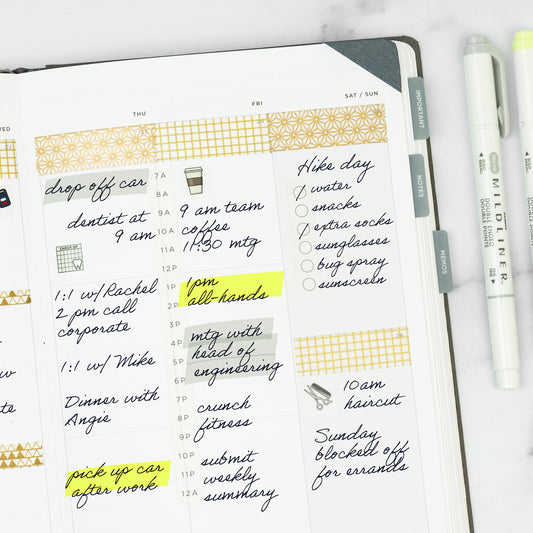 THU
FRI
SAT / SUN
drop off car
dentist at
9 am
1:1 w/Rachel
2 pm call
corporate
1:1 w/ Mike
Dinner with
Angie
pick up car
after work
7A
8A
9A
10A
11A
12P
1P
2P
3P
4P
5P
6P
7P
8P
9P
10P
11P
12A
9 am team
coffee
11:30 mtg
1pm
all-hands
mtg with
head of
engineering
crunch
fitness
submit
weekly
summary
Hike day
water
snacks
extra socks
sunglasses
bug spray
sunscreen
10am
haircut
Sunday
blocked off
for errands
IMPORTANT
NOTES
MEMOS
MILDLINER
DOUBLE ENDED
DOUBLE POINTE